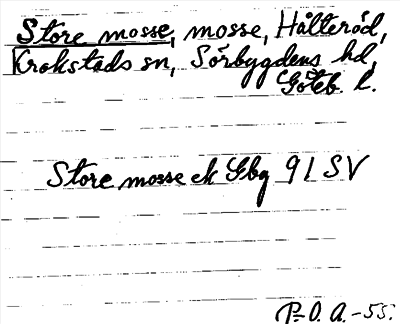 Store mosse, mosse, Hålteröd,
Krokstads sn, Sörbygdens hd,
Göteb. l.
Store mosse ek Gbg 91 SV
P.O.A.-55.